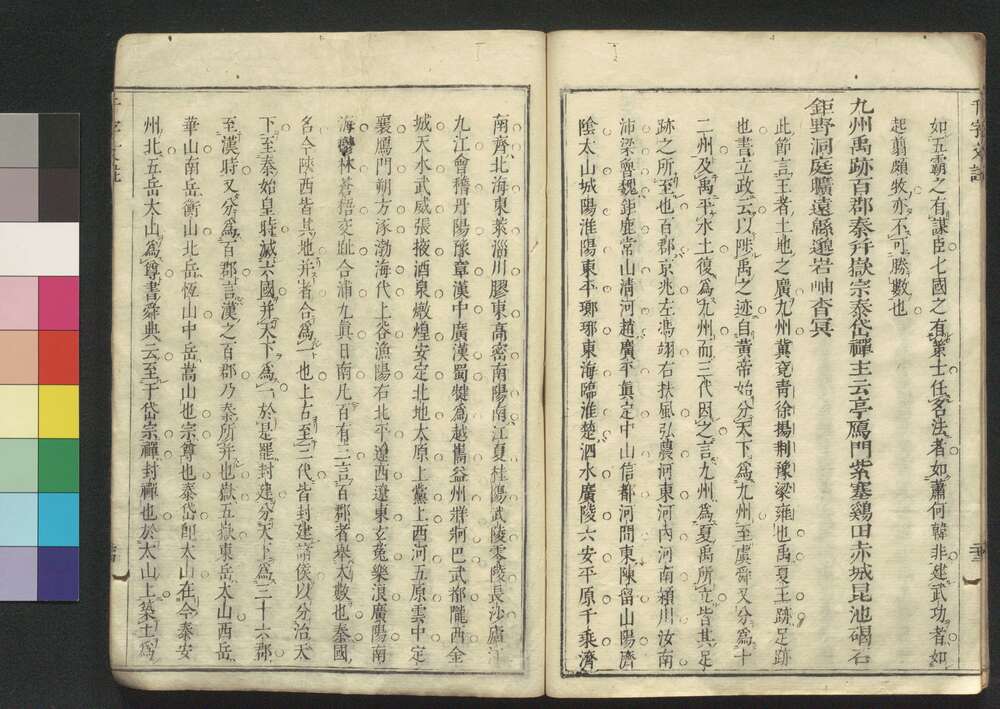 如五霸之有謀臣七國之有策士任名法者如蕭何韓非建武功者如
起翦頗牧亦不可勝數也
九州禹跡百郡秦并嶽宗泰岱禪主云亭鴈門紫塞雞田赤城昆池碣石
鉅野洞庭曠遠緜邈岩岫杳冥
此節言王者土地之廣九州冀兗青徐揚荆豫梁雍也禹夏王跡足跡
也書立政云以陟禹之迹自黄帝始分天下爲九州至虞舜又分爲十
二州及禹平水土復爲九州而三代因之言九州爲夏禹所立皆其足
跡之所至也百郡京兆左馮翊右扶風弘農河東河内河南潁川汝南
沛梁魯魏鉅鹿常山清河趙廣平眞定中山信都河間東陳留山陽濟
陰太山城陽淮陽東平瑯琊東海臨淮楚泗水廣陵六安平原千乘濟
南齊北海東萊淄川膠東高密南陽南江夏桂陽武陵零陵長沙廬江
九江會稽丹陽豫章漢中廣漢蜀犍爲越嶲益州牂牁巴武都隴西金
城天水武威張掖酒泉燉煌安定北地太原上黨上西河五原雲中定
襄鴈門朔方涿渤海代上谷漁陽右北平遼西遼東玄菟樂浪廣陽南
海鬱林蒼梧交趾合浦九眞日南凡百有三言百郡者舉大數也秦國
名今陝西皆其地并者合爲一也上古至三代皆封建諸侯以分治天
下至秦始皇時滅六國并天下爲一於是罷封建分天下爲三十六郡
至漢時又分爲百郡言漢之百郡乃秦所并也嶽五嶽東岳太山西岳
華山南岳衡山北岳恆山中岳嵩山也宗尊也泰岱即太山在今泰安
州北五岳太山爲尊書舜典云至于岱宗禪封禪也於太山上築土爲